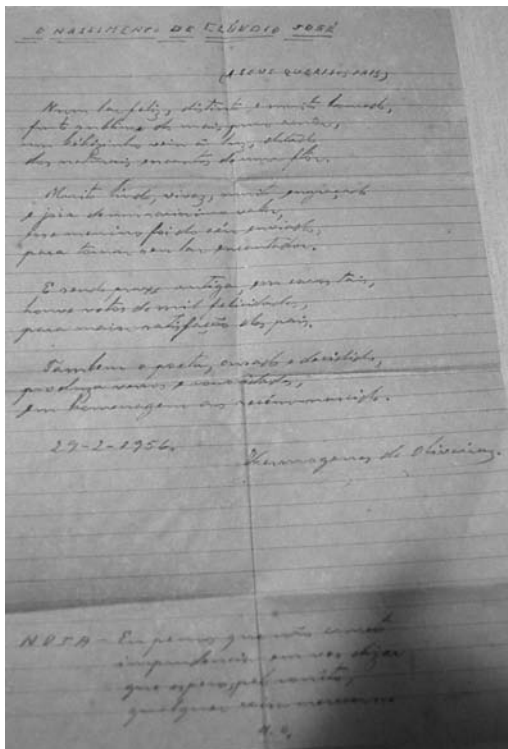 O NASCIMENTO DE CLÁUDIO JOSÉ
(A SEUS QUERIDOS PAIS)
Num lar feliz, distinto e muito honrado,
fruto sublime do mais puro amor,
um bebêzinho veio à luz, dotado
dos naturais encantos de uma flôr.
Muito lindo, vivaz, muito engraçado
e joia de um valor,
esse menino foi do céu enviado,
para tornar seu lar encantador.
E sendo praxe antiga, em casos tais,
houve votos de mil felicidades,
para maior satisfação dos pais.
Tambem o poeta, ousado e decidido,
produziu versos e
em homenagem ao recém-nascido.
29-2-1956.
Hermogenes de Oliveira.
NOTA - Eu penso que não cometi
imprudencia em vos dizer
que espero, pelo soneto,
qualquer
H. O.